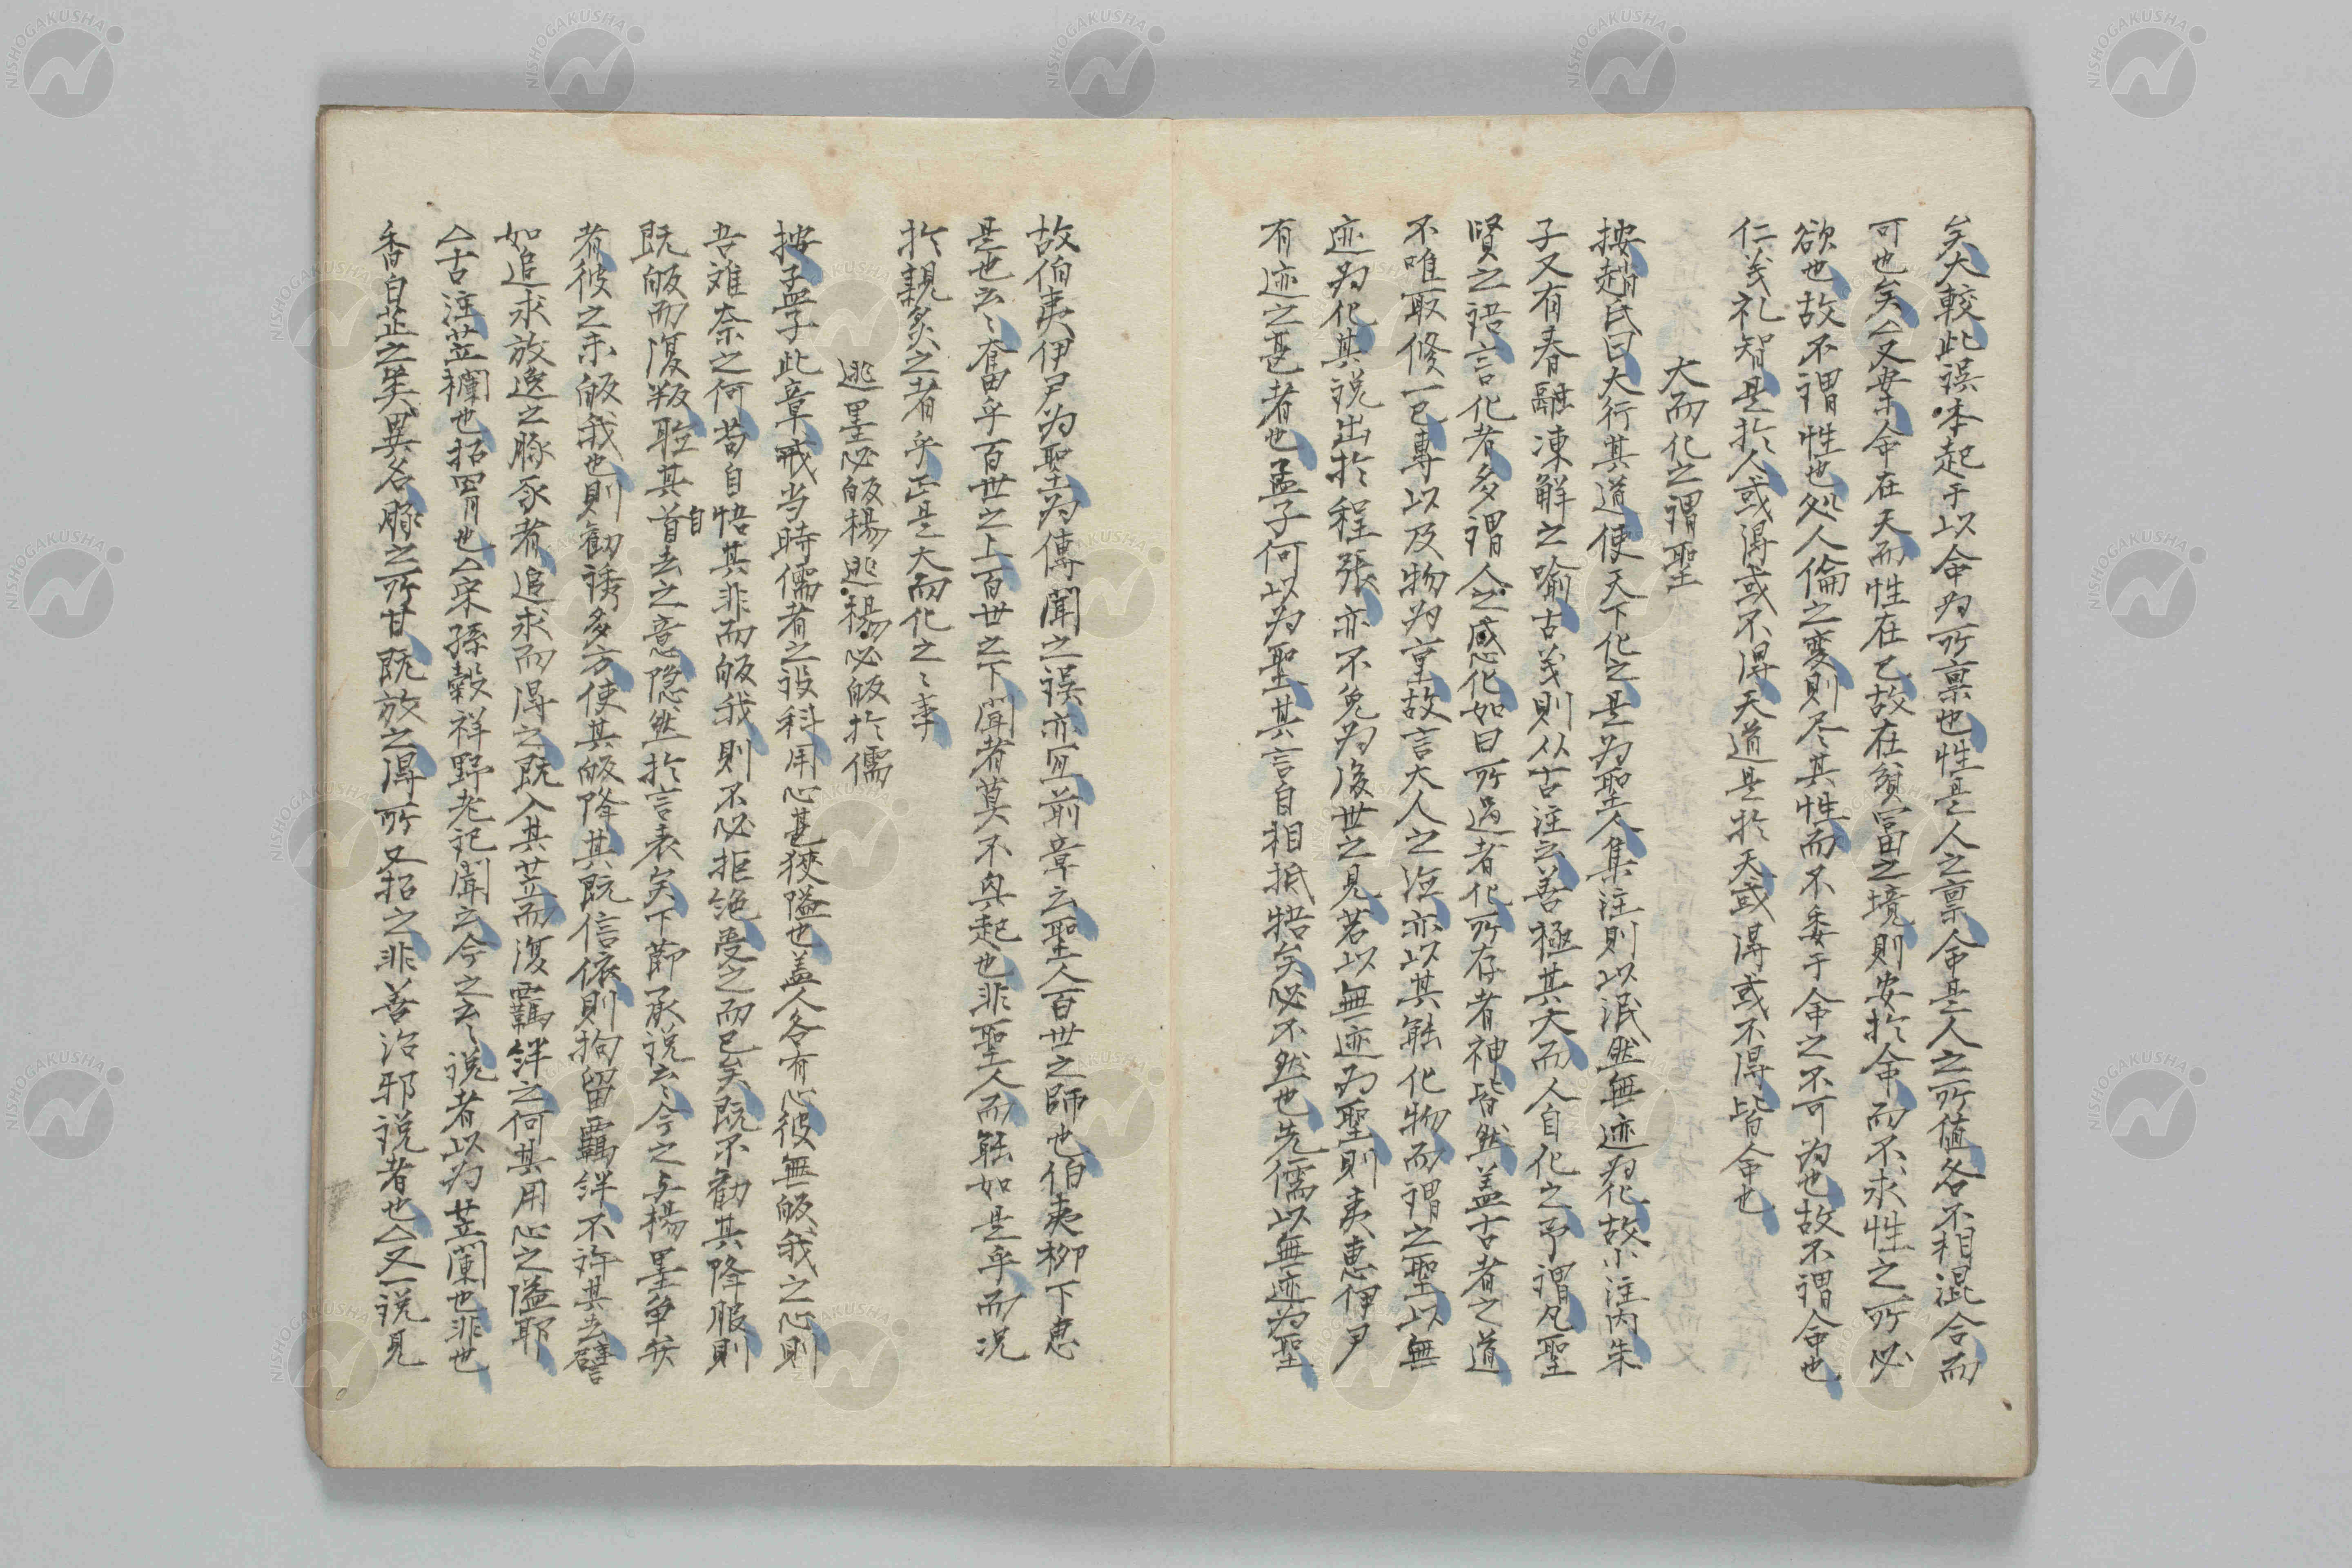 矣大較此誤本起于以命为所禀也性是人之禀命是人之所值各不相混合而
可也矣又案命在天而性在已故在貧富之境則安於命而不求性之所必
欲也故不謂性也処人倫之変則尽其性而不委于命之不可为也故不謂命也
仁義礼智是於人或得或不得天道是於天或得或不得皆命也
大而化之謂聖
按趙氏曰大行其道使天下化之是为聖人集注則以泯然無迹为化故小注内朱
子又有春融凍解之喻古義則从古注云善極其大而人自化之予謂凡聖
賢之語言化者多謂人之感化如曰所過者化所存者神皆然盖古者之道
不唯取修一已專以及物为重故言大人之徳亦以其能化物而謂之聖以無
迹为化其説出於程張亦不免为後世之見若以無迹为聖則夷惠伊尹
有迹之甚者也孟子何以为聖其言自相抵牾矣必不然也先儒以無迹为聖
故伯夷伊尹为聖为傳聞之誤亦宜前章云聖人百世之師也伯夷柳下恵
是也云〻奮乎百世之上百世之下聞者莫不興起也非聖人而能如是乎而况
於親炙之者乎正是大而化之〻事
逃墨必皈楊逃楊必皈於儒
按孟子此章戒当時儒者之設科用心甚狹隘也盖人各有心彼無皈我之心則
吾难奈之何苟自悟其非而皈我則不必拒絶受之而已矣既不勧其降服則
既皈而復叛聴其自首去之意隐然於言表矣下節承説云〻今之与楊墨争矣
者彼之未皈我也則勧誘多方使其皈降其既信依則拘留羈絆不許其去譬
如追求放逸之豚豕者追求而得之既入其苙而復羈絆之何其用心之隘耶
古注苙欄也招罥也宋孫毅祥野老記聞云今之云〻説者以为苙蘭也非也
香白芷之类異名豚之所甘既放之得所又招之非善治邪説者也又一説見
NISHOGAKUSHA